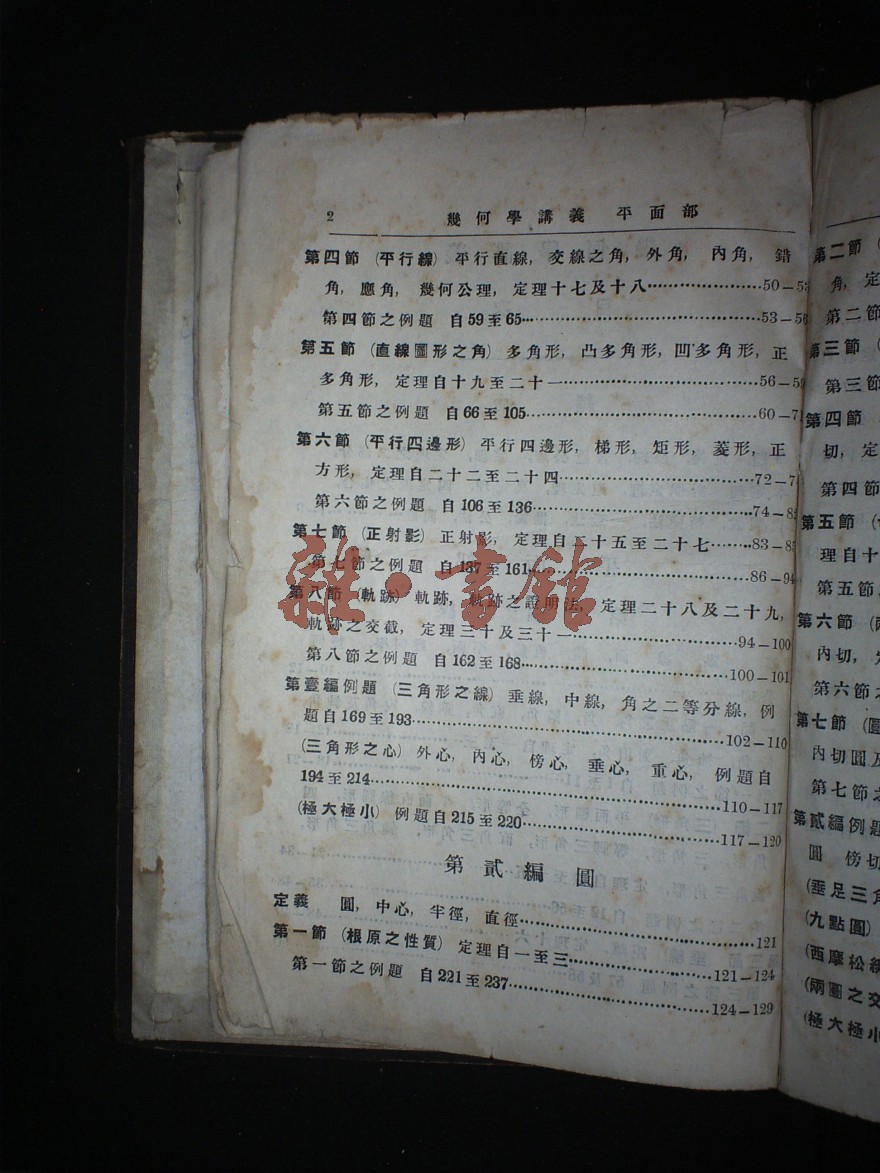 2 幾何學講義 平面部
第四節 (平行線) 平行直線, 交線之角, 外角, 內角, 錯
角, 應角, 幾何公理, 定理十七及十八……50—5
第四節之例題 自59至65……53—5
第五節 (直線圖形之角) 多角形, 凸多角形, 凹多角形, 正
多角形, 定理自十九至二十一……56—5
第五節之例題 自66至105……60—7
第六節 (平行四邊形) 平行四邊形, 梯形, 矩形, 菱形, 正
方形, 定理自二十二至二十四……72—7
第六節之例題 自106至136……74—8
第七節 (正射影) 正射影, 定理自二十五至二十七……83—8
第七節之例題 自137至161……86—94
第八節 (軌跡) 軌跡, 軌跡之證明法, 定理二十八及二十九,
軌跡之交截, 定理三十及三十一……94—100
第八節之例題 自162至168……100—101
第壹編例題 (三角形之線) 垂線, 中線, 角之二等分線, 例
題自169至193……102—110
(三角形之心) 外心, 內心, 傍心, 垂心, 重心, 例題自
194至214……110—117
(極大極小) 例題自215至220……117—120
第貳編 圓
定義 圓, 中心, 半徑, 直徑……121
第一節 (根原之性質) 定理自一至三……121—124
第一節之例題 自221至237……124—129
第二節 (
角, 定
第二節
第三節 (
第三節
第四節
切, 定
第四節
第五節 (
理自十
第五節
第六節 (兩
內切, 定
第六節
第七節 (圓
內切圓及
第七節之
第貳編例題
圓 傍切
(垂足三角
(九點圓)
(西摩松線
(兩圓之交
(極大極小
雜·書館